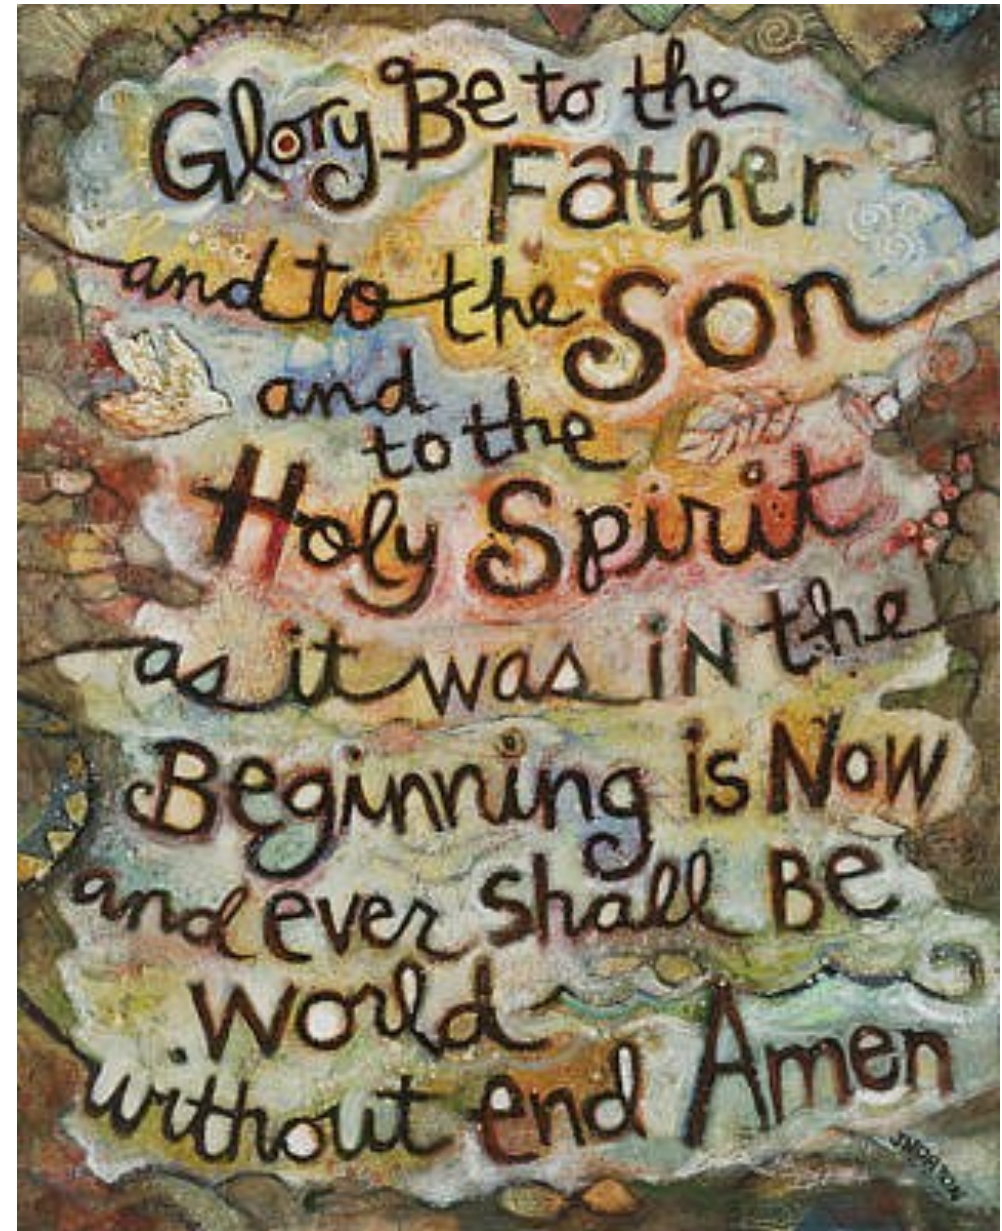 Glory Be to the
Father
and to the Son
and
to the
Holy Spirit
as it was iN the
Beginning is Now
and ever shall Be
World
without end Amen
J MORTON